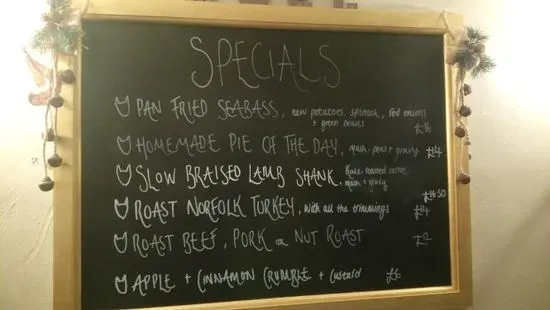 SPECIALS
PAN FRIED SEABASS, new potatoes, spinach, red onions
+ green beans £16
HOMEMADE PIE OF THE DAY, mash, peas + gravy £14
SLOW BRAISED LAMB SHANK, Kale, roasted carrot
mash + gravy £16.50
ROAST NORFOLK TURKEY, with all the trimmings £14
ROAST BEEF, PORK or NUT ROAST £12
APPLE + CINNAMON CRUMBLE + custard £6